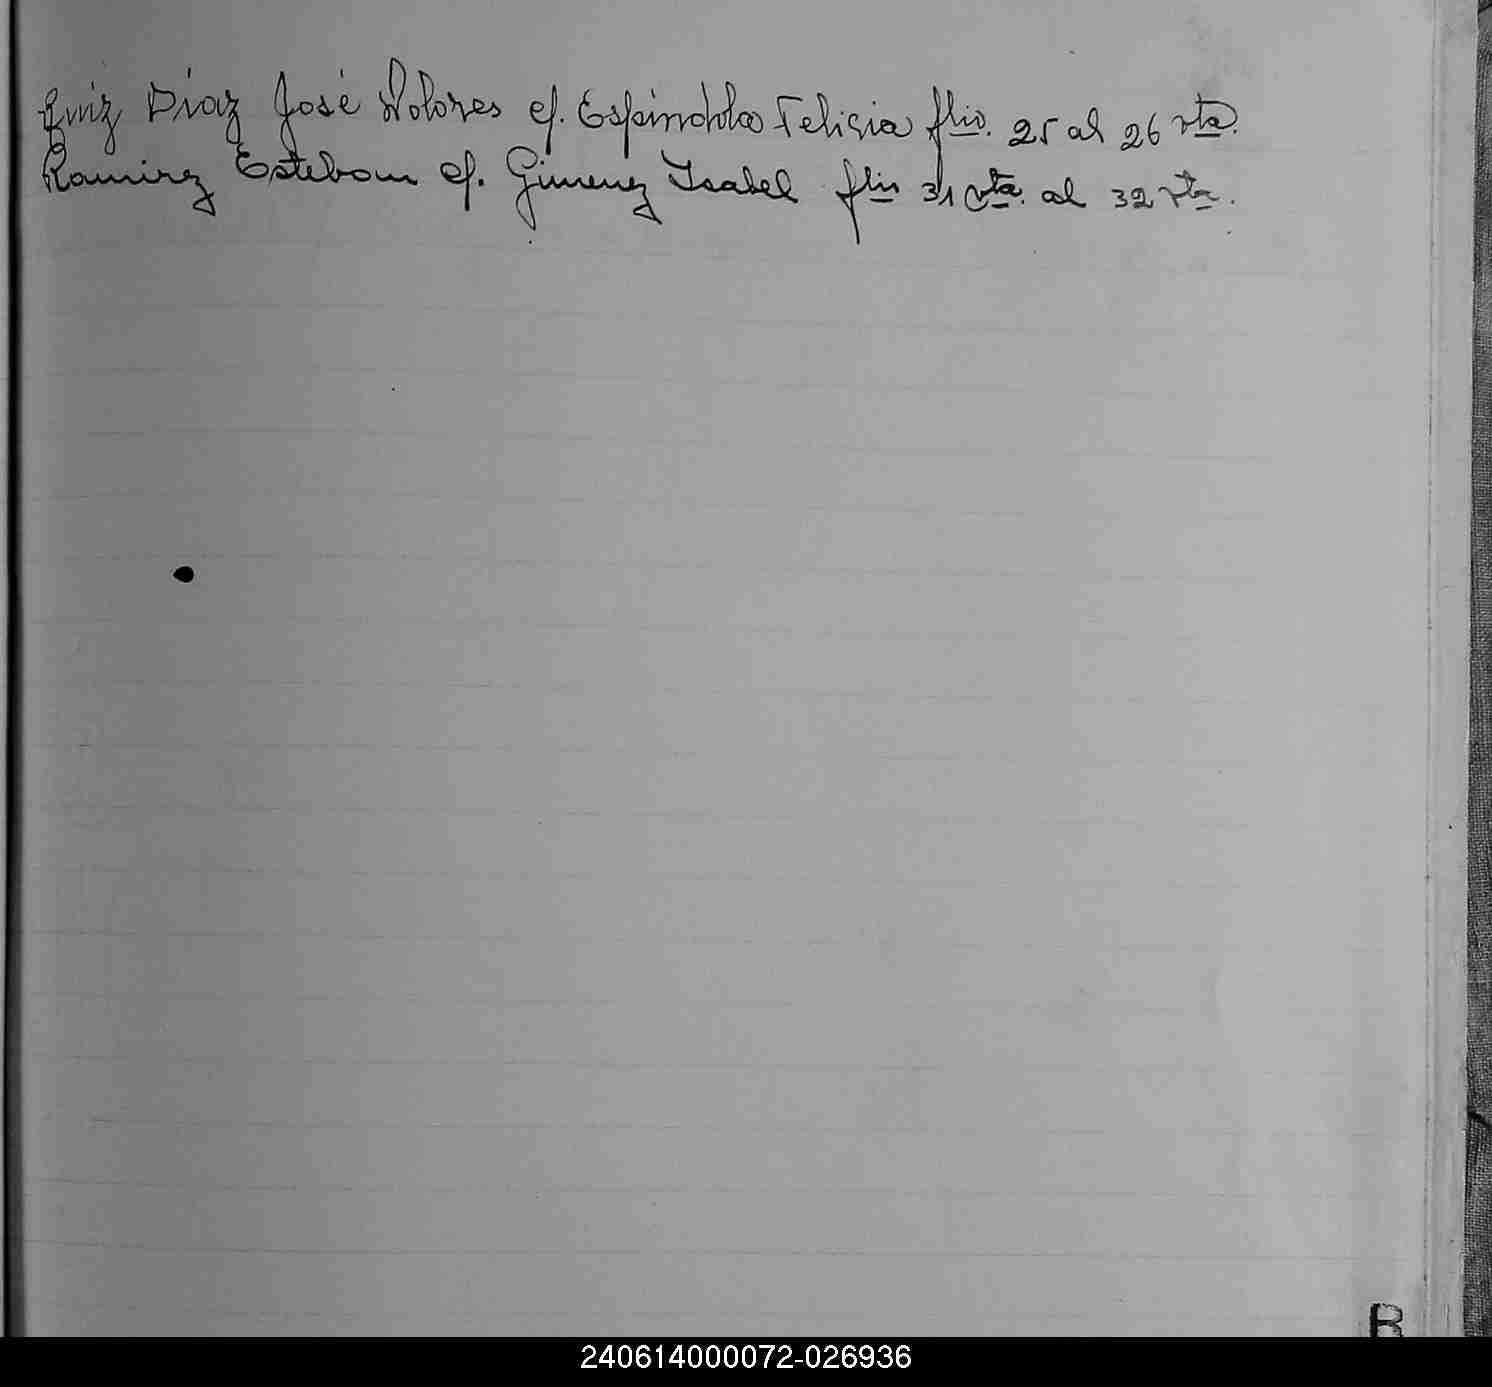 Ruiz Diaz José Dolores c/. Espindola Felicia flio. 25 al 26 vta.
Ramirez Esteban c/. Gimenez Isabel flio 31 vta. al 32 vta.
R
240614000072-026936